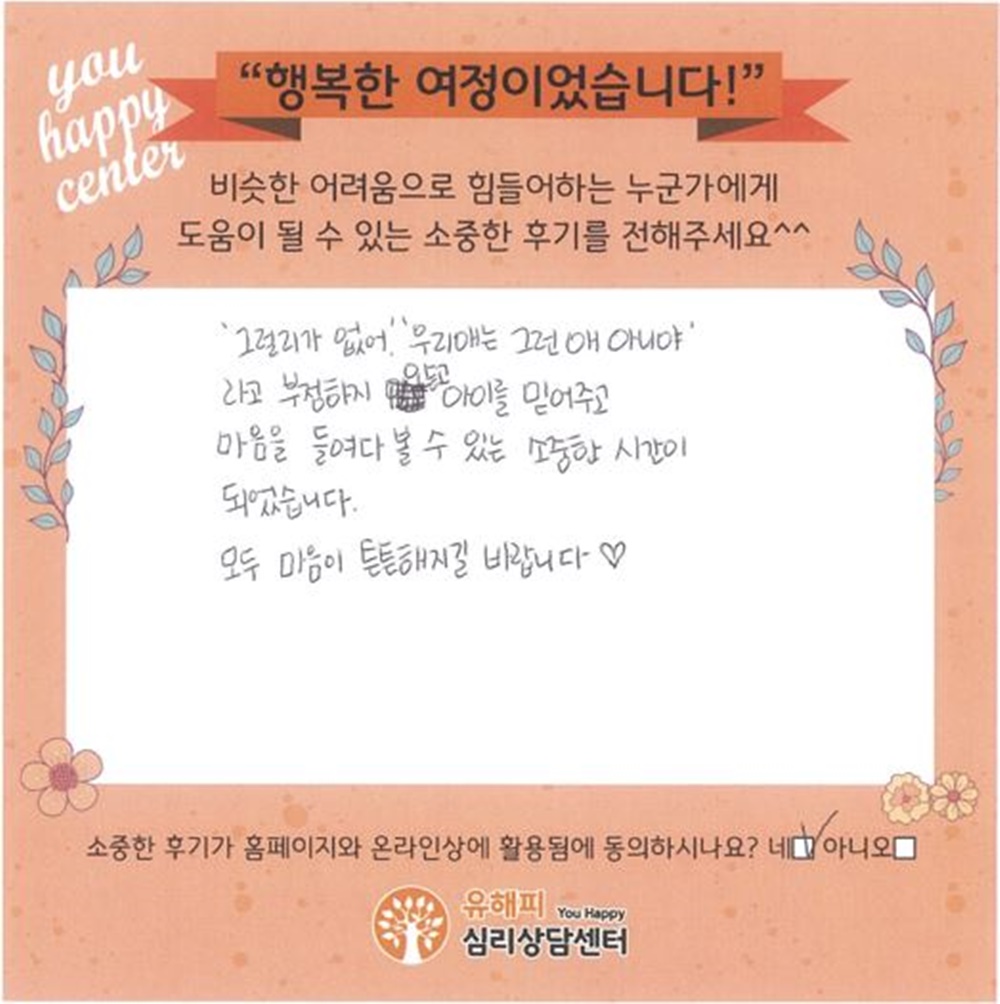 you
happy
center
“행복한 여정이었습니다!”
비슷한 어려움으로 힘들어하는 누군가에게
도움이 될 수 있는 소중한 후기를 전해주세요^^
'그럴리가 없어.' '우리애는 그런 애 아니야'
라고 부정하지 않고 아이를 믿어주고
마음을 들여다 볼 수 있는 소중한 시간이
되었습니다.
모두 마음이 튼튼해지길 바랍니다♡
소중한 후기가 홈페이지와 온라인상에 활용됨에 동의하시나요? 네☑ 아니오☐
유해피 You Happy
심리상담센터